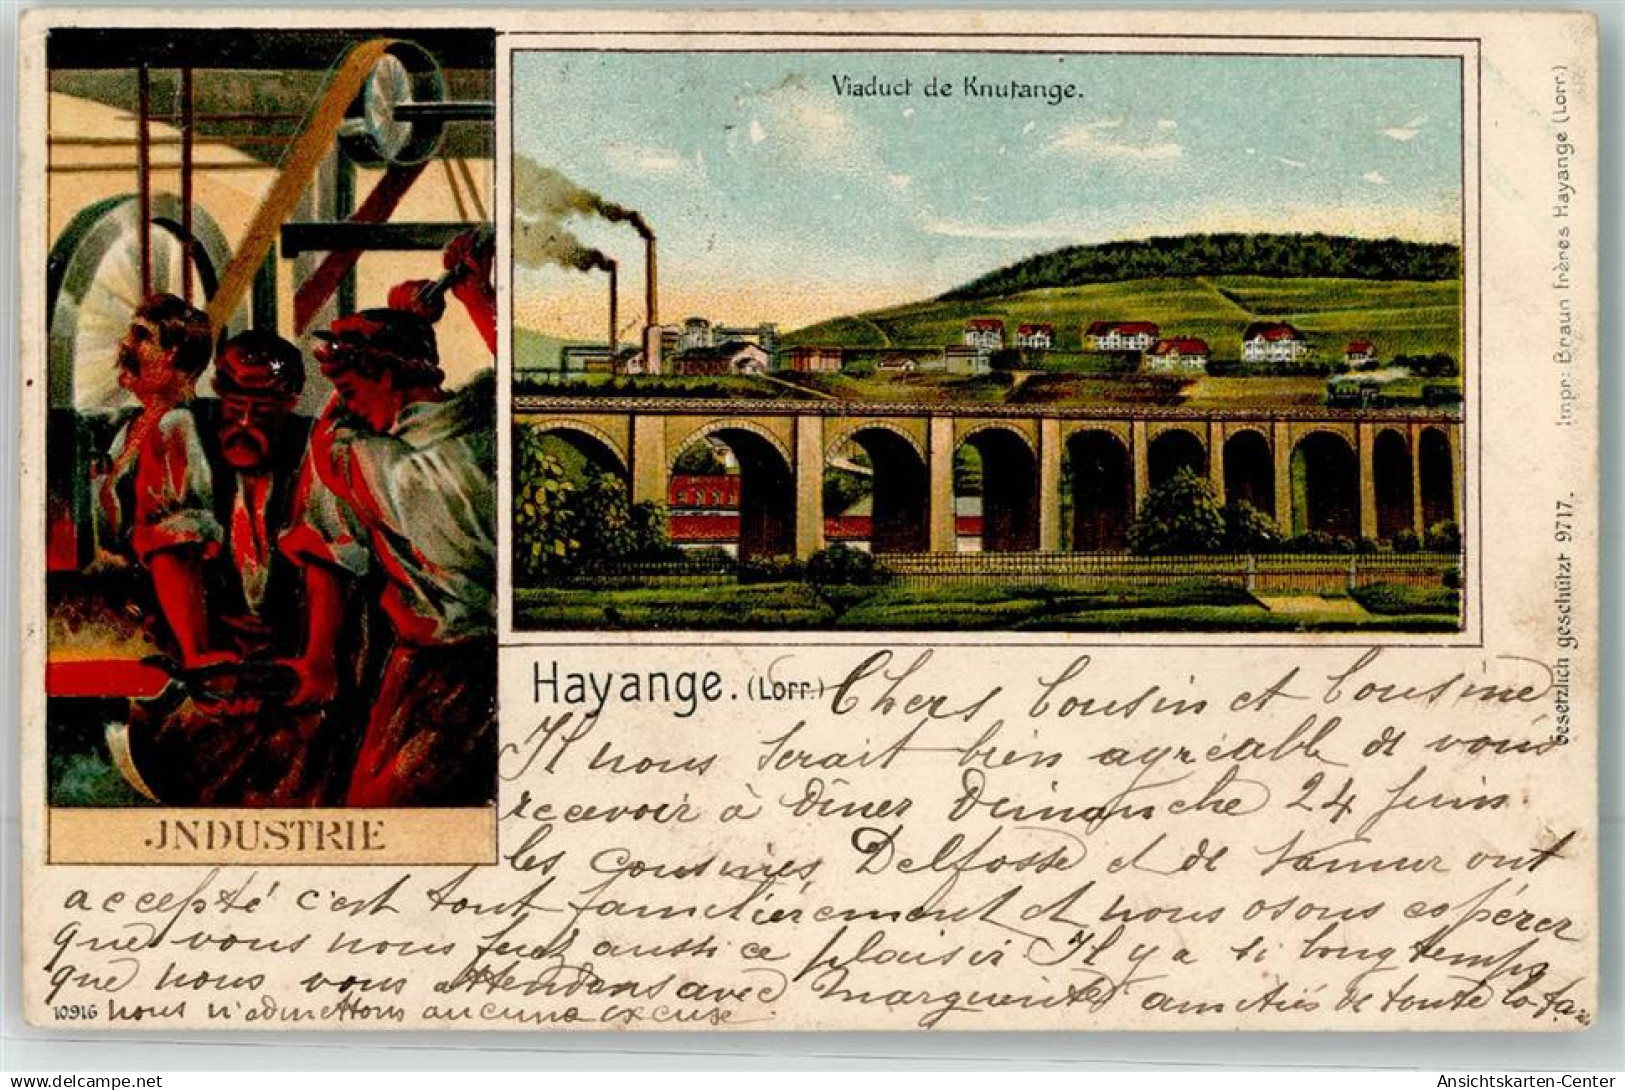 Viaduct de Knutange.
JNDUSTRIE
Hayange. (Lorr.)
Impr: Braun frères Hayange (Lorr.)
Gesetzlich geschützt 9717.
Chers Cousin et Cousine
Il nous serait bien agréable de vous
recevoir à dîner Dimanche 24 Juin.
les cousines Delfosse et de Namur ont
accepté c'est tout familièrement et nous osons espérer
que vous nous ferez aussi ce plaisir Il y a si longtemps
que nous vous attendons avec Marguerite amitiés de toute la
nous n'admettons aucune excuse.
10916
Ansichtskarten-Center